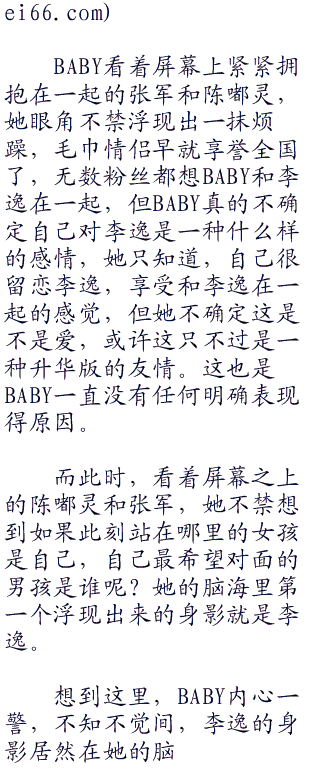 ei66.com)
BABY看着屏幕上紧紧拥
抱在一起的张军和陈嘟灵，
她眼角不禁浮现出一抹烦
躁，毛巾情侣早就享誉全国
了，无数粉丝都想BABY和李
逸在一起，但BABY真的不确
定自己对李逸是一种什么样
的感情，她只知道，自己很
留恋李逸，享受和李逸在一
起的感觉，但她不确定这是
不是爱，或许这只不过是一
种升华版的友情。这也是
BABY一直没有任何明确表现
得原因。
而此时，看着屏幕之上
的陈嘟灵和张军，她不禁想
到如果此刻站在哪里的女孩
是自己，自己最希望对面的
男孩是谁呢？她的脑海里第
一个浮现出来的身影就是李
逸。
想到这里，BABY内心一
警，不知不觉间，李逸的身
影居然在她的脑